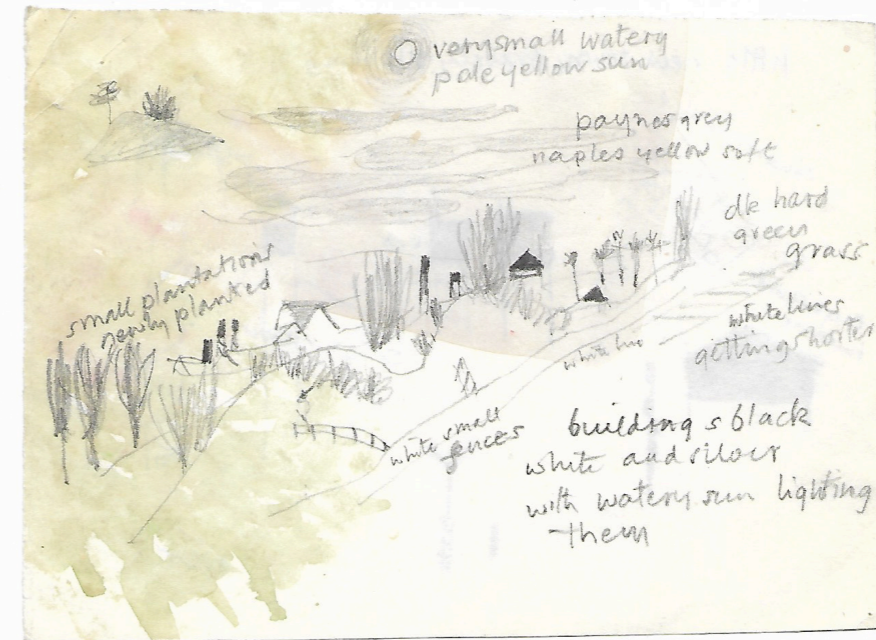 very small watery
pale yellow sun
paynes grey
naples yellow soft
dk hard
green
grass
small plantations
newly planted
white lines
getting shorter
white line
white small
fences
buildings black
white and silver
with watery sun lighting
them